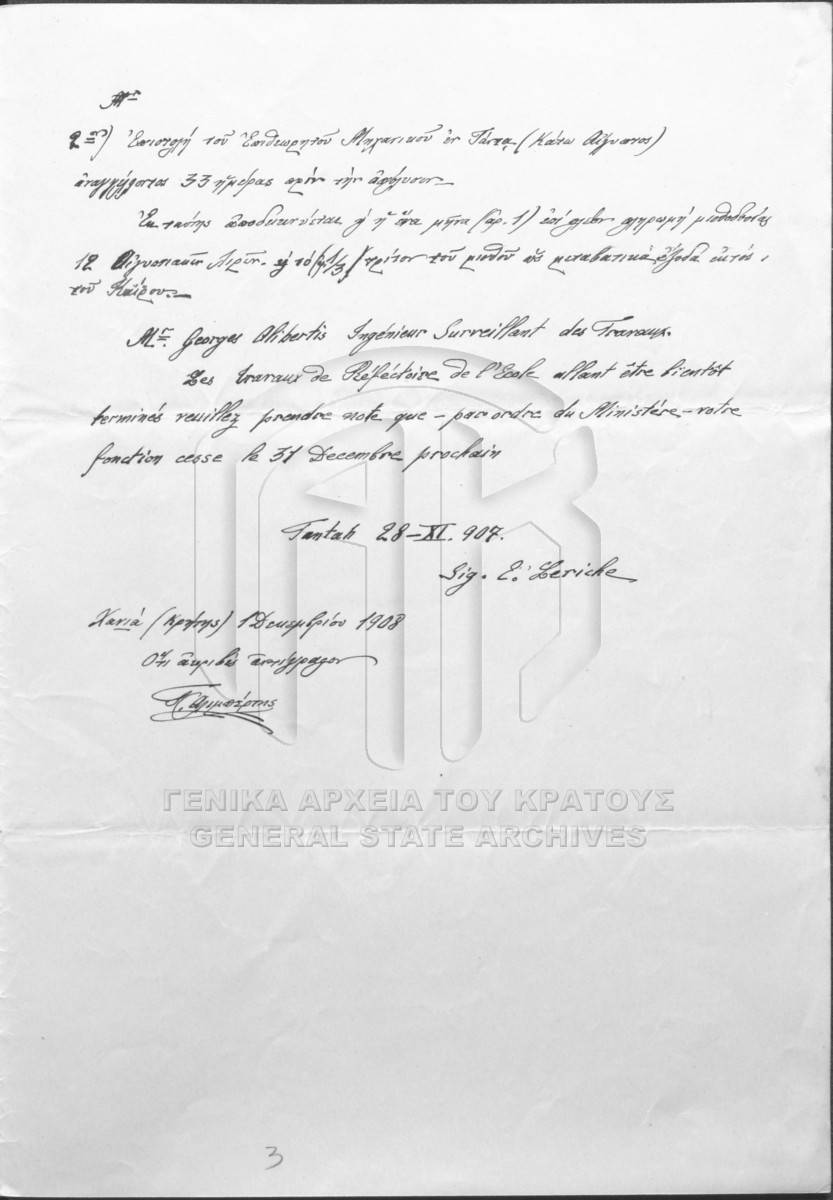 Mr
2ον) Ἐπιστολή τοῦ Ἐπιθεωρητοῦ Μηχανικοῦ ἐν Τάντα (Κάτω Αἴγυπτος)
33 ἡμέρας πρίν τήν ἀπόλυσιν
Ἐκ ταύτης ἀποδεικνύεται ἕνα μῆνα (ἀρ. 1) ἐπί πλέον πληρωμή μισθοδοσίας
12 Αἰγυπτιακῶν Λιρῶν. τό (1/3) τρίτον τοῦ μισθοῦ ὡς μεταβατικά ἔξοδα ἐκτός
τοῦ Καΐρου.
Mr. Georges Alibertis Ingénieur Surveillant des Travaux.
Les travaux de Réféctoire de l'Ecole allant être bientôt
terminés veuillez prendre note que - par ordre du Ministére - votre
fonction cesse le 31 Decembre prochain
Tantah 28-XI. 907.
Sig. E. Lericke
Χανιά (Κρήτης) 1 Δεκεμβρίου 1908
Ὅτι ἀκριβές ἀντίγραφον
Γ. Αλιμπέρτης
ΓΕΝΙΚΑ ΑΡΧΕΙΑ ΤΟΥ ΚΡΑΤΟΥΣ
GENERAL STATE ARCHIVES
3